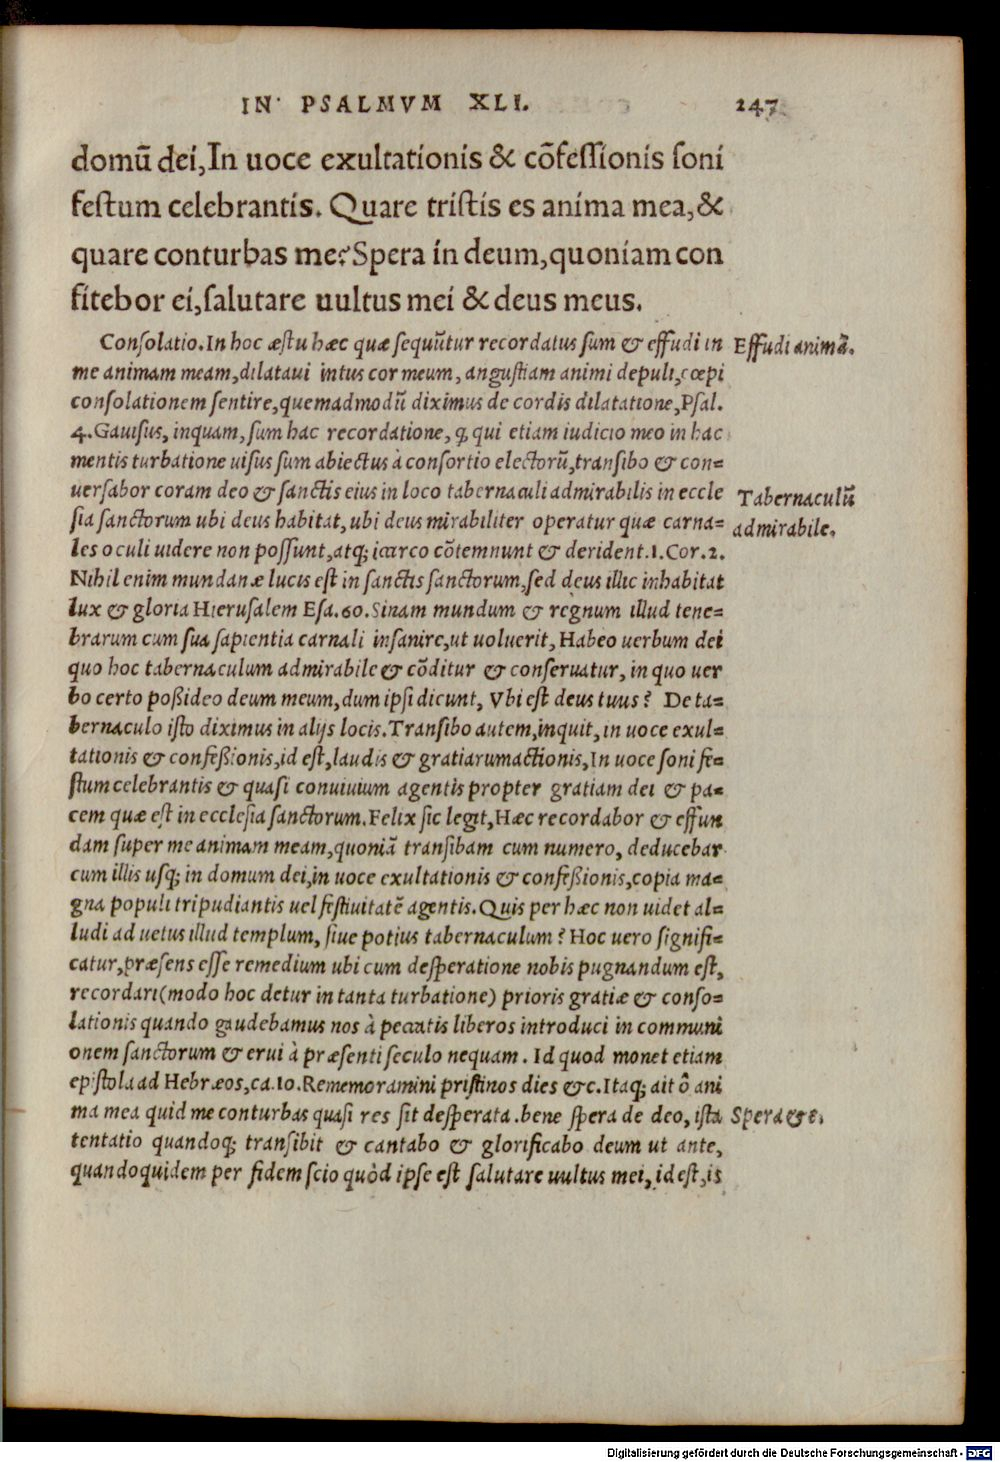 IN PSALMVM XLI. 247
domū dei, In uoce exultationis & cōfessionis soni
festum celebrantis. Quare tristis es anima mea, &
quare conturbas me? Spera in deum, quoniam con
fitebor ei, salutare uultus mei & deus meus.
Consolatio. In hoc æstu hæc quæ sequūtur recordatus sum & effudi in
Effudi animā.
me animam meam, dilataui intus cor meum, angustiam animi depuli, cœpi
consolationem sentire, quemadmodū diximus de cordis dilatatione, Psal.
4. Gauisus, inquam, sum hac recordatione, q̃ qui etiam iudicio meo in hac
mentis turbatione uisus sum abiectus à consortio electorū, transibo & con=
uersabor coram deo & sanctis eius in loco tabernaculi admirabilis in eccle
Tabernaculū
sia sanctorum ubi deus habitat, ubi deus mirabiliter operatur quæ carna=
admirabile.
les oculi uidere non possunt, atq; iccirco cōtemnunt & derident. 1. Cor. 2.
Nihil enim mundanæ lucis est in sanctis sanctorum, sed deus illic inhabitat
lux & gloria Hierusalem Esa. 60. Sinam mundum & regnum illud tene=
brarum cum sua sapientia carnali insanire, ut uoluerit, Habeo uerbum dei
quo hoc tabernaculum admirabile & cōditur & conseruatur, in quo uer
bo certo poßideo deum meum, dum ipsi dicunt, Vbi est deus tuus? De ta=
bernaculo isto diximus in alijs locis. Transibo autem, inquit, in uoce exul=
tationis & confeßionis, id est, laudis & gratiarumactionis, In uoce soni fe=
stum celebrantis & quasi conuiuium agentis propter gratiam dei & pa=
cem quæ est in ecclesia sanctorum. Felix sic legit, Hæc recordabor & effun
dam super me animam meam, quoniā transibam cum numero, deducebar
cum illis usq; in domum dei, in uoce exultationis & confeßionis, copia ma=
gna populi tripudiantis uel festiuitatē agentis. Quis per hæc non uidet al=
ludi ad uetus illud templum, siue potius tabernaculum? Hoc uero signifi=
catur, præsens esse remedium ubi cum desperatione nobis pugnandum est,
recordari (modo hoc detur in tanta turbatione) prioris gratiæ & conso=
lationis quando gaudebamus nos à peccatis liberos introduci in communi
onem sanctorum & erui à præsenti seculo nequam. Id quod monet etiam
epistola ad Hebræos, ca. 10. Rememoramini pristinos dies &c. Itaq; ait ô ani
ma mea quid me conturbas quasi res sit desperata. bene spera de deo, ista
Spera &c.
tentatio quandoq; transibit & cantabo & glorificabo deum ut ante,
quandoquidem per fidem scio quòd ipse est salutare uultus mei, id est, is
Digitalisierung gefördert durch die Deutsche Forschungsgemeinschaft - DFG